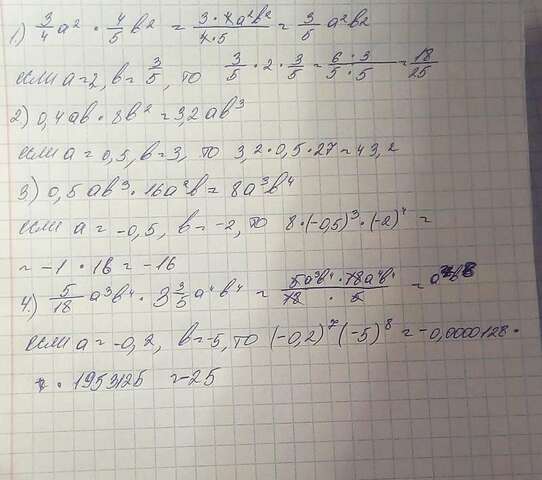 1) 3/4 a² · 4/5 b² = 3·4a²b²/4·5 = 3/5 a²b²
если a=2, b= 3/5, то 3/5 · 2 · 3/5 = 6·3/5·5 = 18/25
2) 0,4ab · 8b² = 3,2ab³
если a=0,5, b=3, то 3,2·0,5·27=43,2
3) 0,5ab³ · 16a²b = 8a³b⁴
если a = -0,5, b = -2, то 8·(-0,5)³·(-2)⁴ =
= -1 · 16 = -16
4.) 5/18 a³b⁴ · 3 3/5 a⁴b⁴ = 5a³b⁴·18a⁴b⁴/18·5 = a⁷b⁸
если a = -0,2, b=-5, то (-0,2)⁷(-5)⁸ = -0,0000128·
· 1953125 = -25